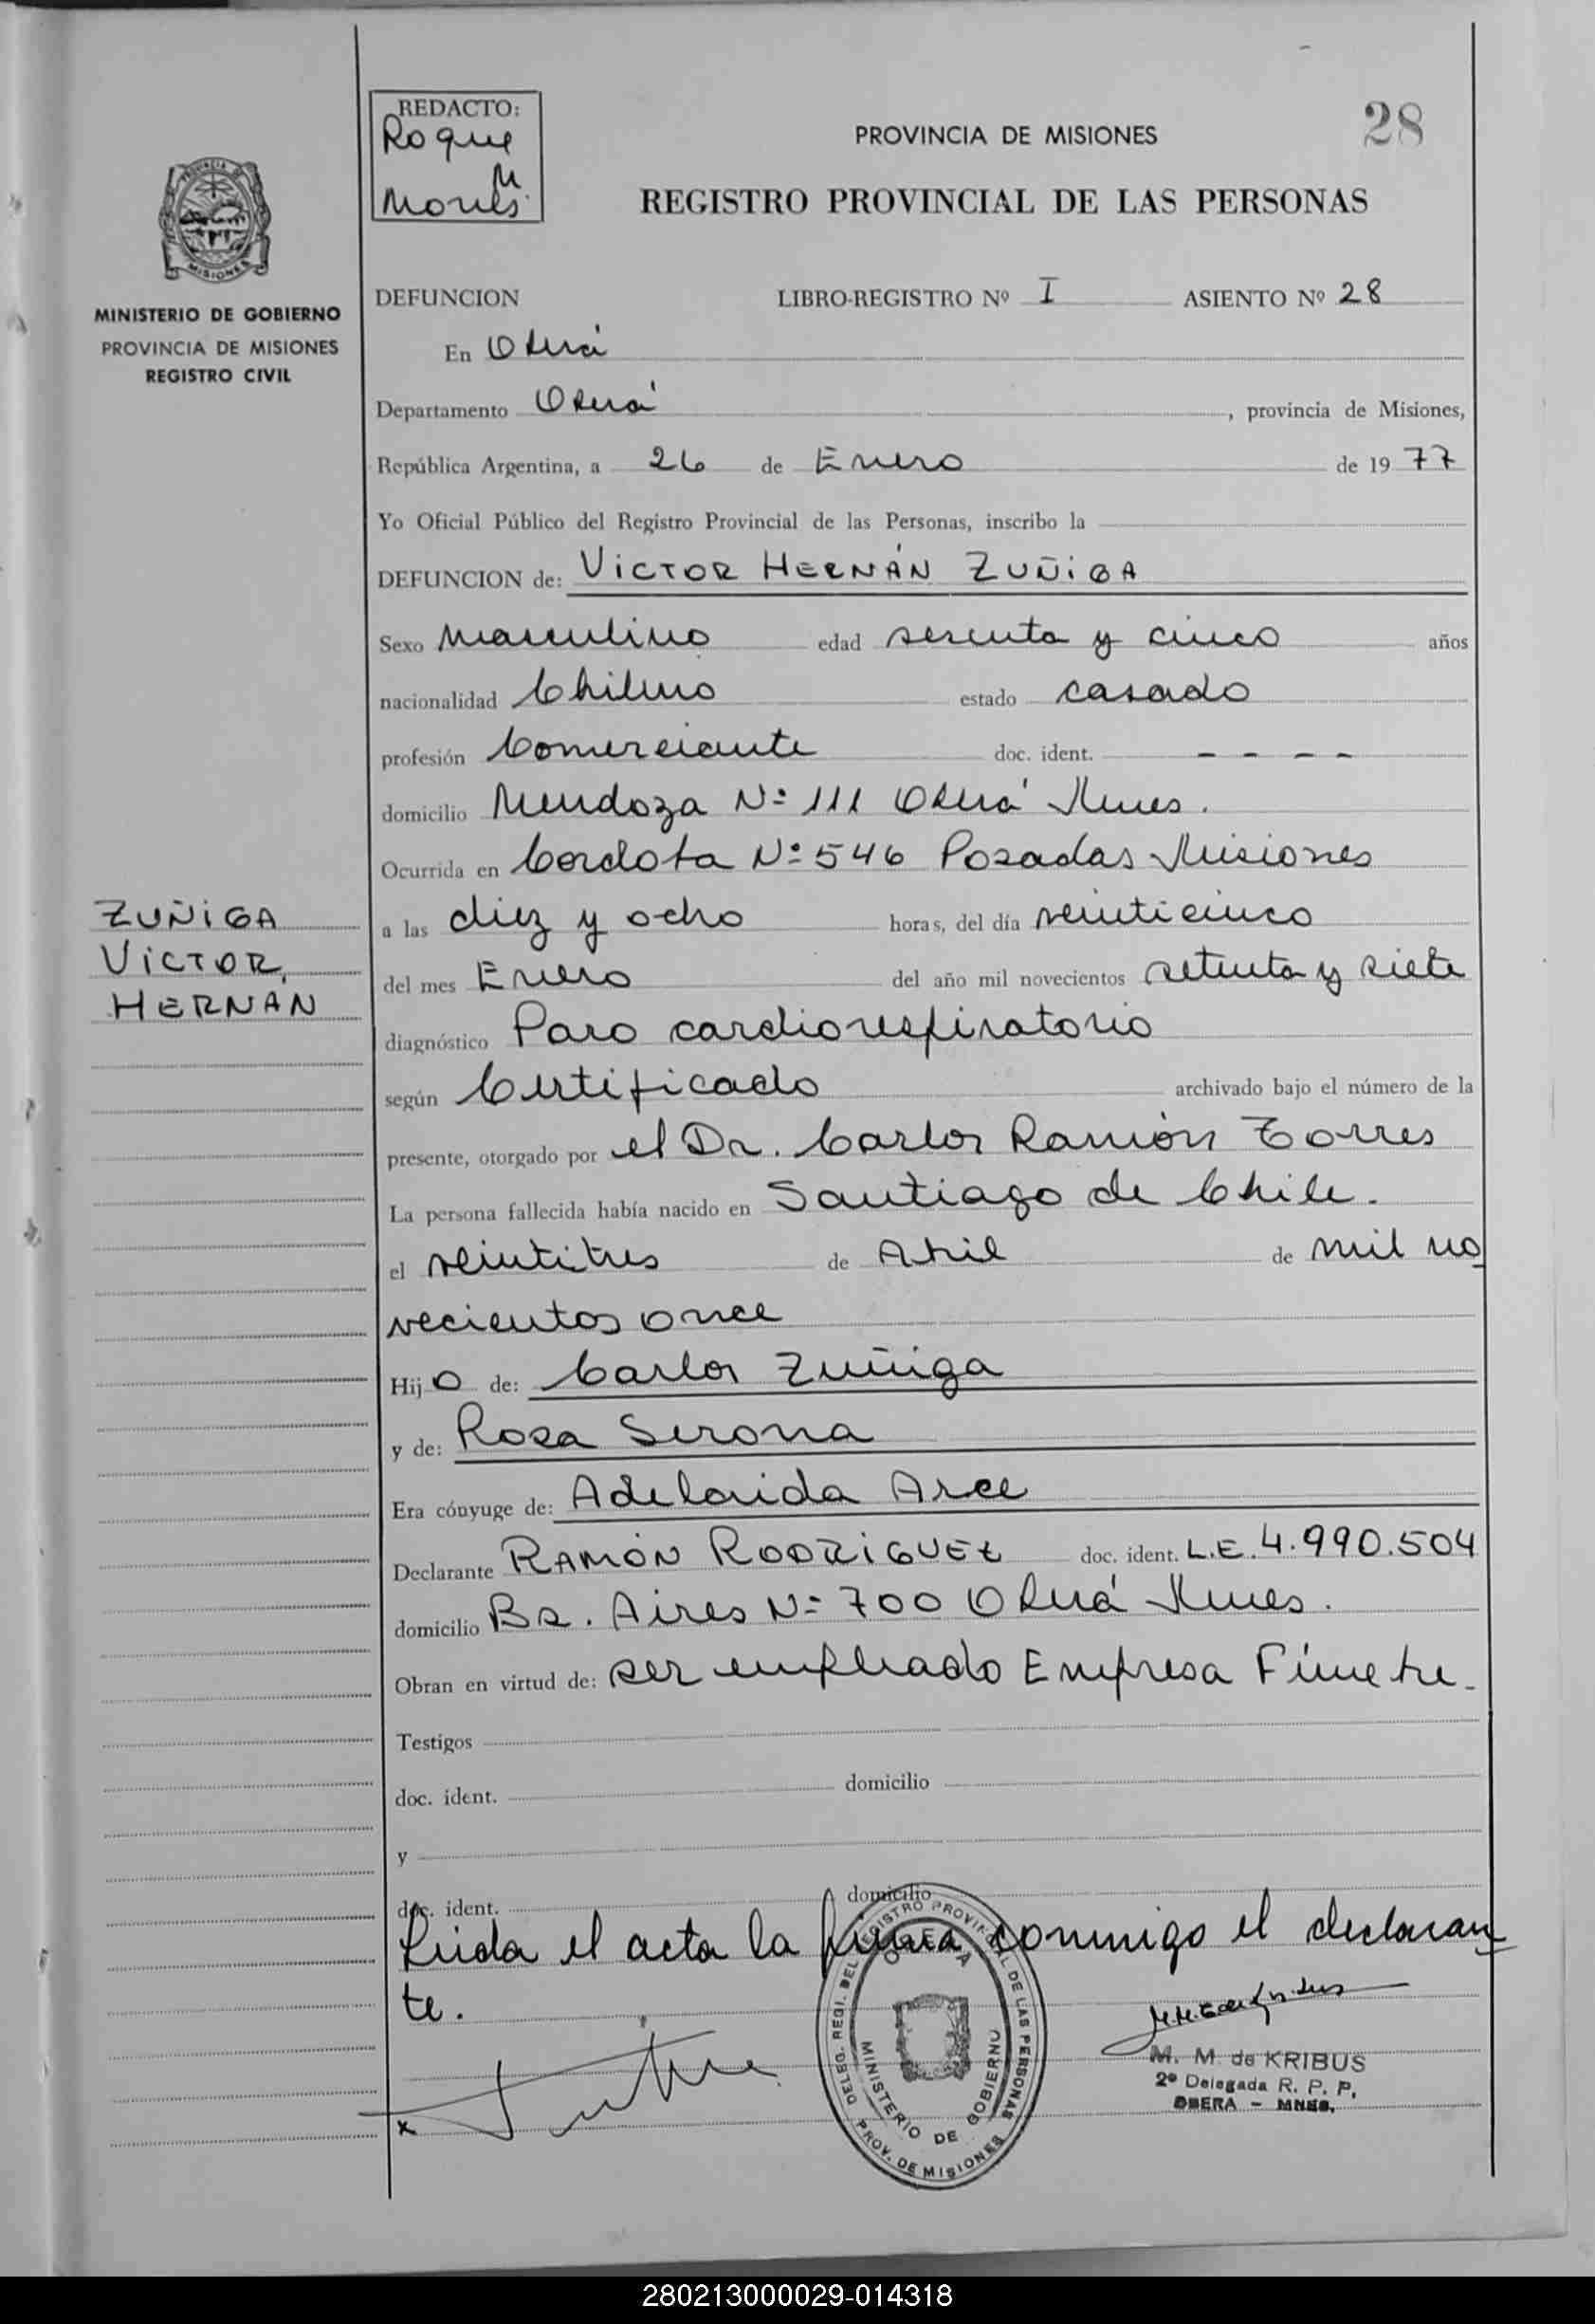 REDACTO:
Roque
M
PROVINCIA DE MISIONES
28
REGISTRO PROVINCIAL DE LAS PERSONAS
PROVINCIA DE MISIONES
MINISTERIO DE GOBIERNO
PROVINCIA DE MISIONES
REGISTRO CIVIL
DEFUNCION LIBRO-REGISTRO Nº I ASIENTO Nº 28
En Oberá
Departamento Oberá, provincia de Misiones,
República Argentina, a 26 de Enero de 1977
Yo Oficial Público del Registro Provincial de las Personas, inscribo la
DEFUNCION de: VICTOR HERNÁN ZUÑIGA
Sexo Masculino edad sesenta y cinco años
nacionalidad Chileno estado casado
profesión Comerciante doc. ident. - - - -
domicilio Mendoza Nº 111 Oberá Mnes.
Ocurrida en Cordoba Nº 546 Posadas Misiones
ZUÑIGA
VICTOR,
HERNÁN
a las diez y ocho horas, del día veinticinco
del mes Enero del año mil novecientos setenta y siete
diagnóstico Paro cardiorespiratorio
según Certificado archivado bajo el número de la
presente, otorgado por el Dr. Carlos Ramón Torres
La persona fallecida había nacido en Santiago de Chile.
el veintitres de Abril de mil no
vecientos once
Hijo de: Carlos Zuñiga
y de: Rosa Serona
Era cónyuge de: Adelaida Arce
Declarante RAMÓN RODRIGUEZ doc. ident. L.E. 4.990.504
domicilio Bs. Aires Nº 700 Oberá Mnes.
Obran en virtud de: ser empleado Empresa Fúnebre.
Testigos
doc. ident. domicilio
y
doc. ident. domicilio
Leida el acta la firma conmigo el declaran
te.
DELEG. REGI. DEL REGISTRO PROVINCIAL DE LAS PERSONAS
OBERA
MINISTERIO DE GOBIERNO
PROV. DE MISIONES
M. M. de KRIBUS
2ª Delegada R. P. P.
OBERA - MNES.
280213000029-014318